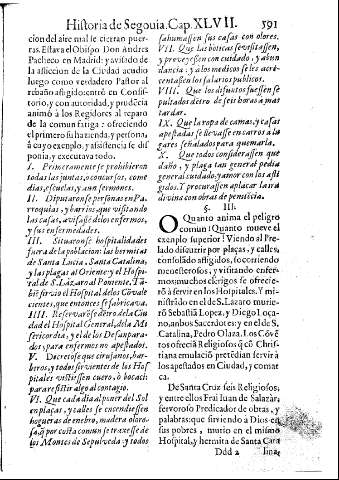 Historia de Segouia. Cap. XLVII. 591
cion del aire mal se cierran puer-
tas. Estava el Obispo Don Andres
Pacheco en Madrid: y avisado de
la afliccion de la Ciudad acudio
luego como verdadero Pastor al
rebaño afligido: entrò en Consis-
torio, y con autoridad, y prudẽcia
animò à los Regidores al reparo
de la comun fatiga: ofreciendo
el primero su hazienda, y persona,
à cuyo exemplo, y assistencia se dis
ponia, y executava todo.
I. Primeramente se prohibieron
todas las juntas, concursos, come
dias, escuelas, y aun sermones.
II. Diputaronse personas en Pa-
rroquias, y barrios, que visitando
las casas, avisassẽ de los enfermos,
y sus enfermedades.
III. Situaronse hospitalidades
fuera de la poblacion: las hermitas
de Santa Lucia, Santa Catalina,
y las plagas al Oriente: y el Hospi-
tal de S. Lazaro al Poniente. Tã-
biẽ servio el Hospital de los Cõvale
cientes, que entonces se fabricava.
IIII. Reservarõse dẽtro de la Ciu
dad el Hospital General, de la Mi
sericordia, y el de los Desanpara-
dos, para enfermos no apestados.
V. Decretose que cirujanos, bar-
beros, y todos sirvientes de los Hos
pitales vistiessen cuero, ò bocaci
para resistir algo al contagio.
VI. Que cada dia al poner del Sol
en plaças, y calles se encendiessen
hogueras de enebro, madera oloro-
sa, q̃ por cuẽta comun se traxesse de
los Montes de Sepulveda: y todos
sahumassen sus casas con olores.
VII. Que las boticas se visitassen,
y proveyessen con cuidado, y abun
dancia: y à los medicos se les acre-
centassen los salarios publicos.
VIII. Que los difuntos fuessen se
pultados dẽtro de seis horas à mas
tardar.
IX. Que la ropa de camas, y casas
apestadas se llevasse en carros à lu
gares señalados para quemarla.
X. Que todos considerassen que
daño, y plaga tan general pedia
general cuydado, y amor con los afli
gidos. Y procurassen aplacar la ira
divina con obras de penitẽcia.
§. III.
O Quanto anima el peligro
comun! Quanto mueve el
exemplo superior! Viendo al Pre-
lado discurrir por plaças, y calles,
consolado afligidos, socorriendo
menesterosos, y visitando enfer-
mos: muchos exẽrigos se ofrecie-
rõ à servir en los Hospitales. Y mi-
nistrado en el de S. Lazaro murie-
rõ Sebastiã Lopez, y Diego Loça-
no, ambos Sacerdotes: y en el de S.
Catalina, Pedro Olaza. Los Cõvẽ
tos ofrecia Religiosos: q̃ cõ Chris-
tiana emulaciõ pretẽdian servir à
los apestados en Ciudad, y comar
ca.
De Santa Cruz seis Religiosos,
y entre ellos Frai Iuan de Salazar,
fervoroso Predicador de obras, y
palabras: que sirviendo à Dios en
sus pobres, murio en el mismo
Hospital, y hermita de Santa Cata
Ddd 2 lina: